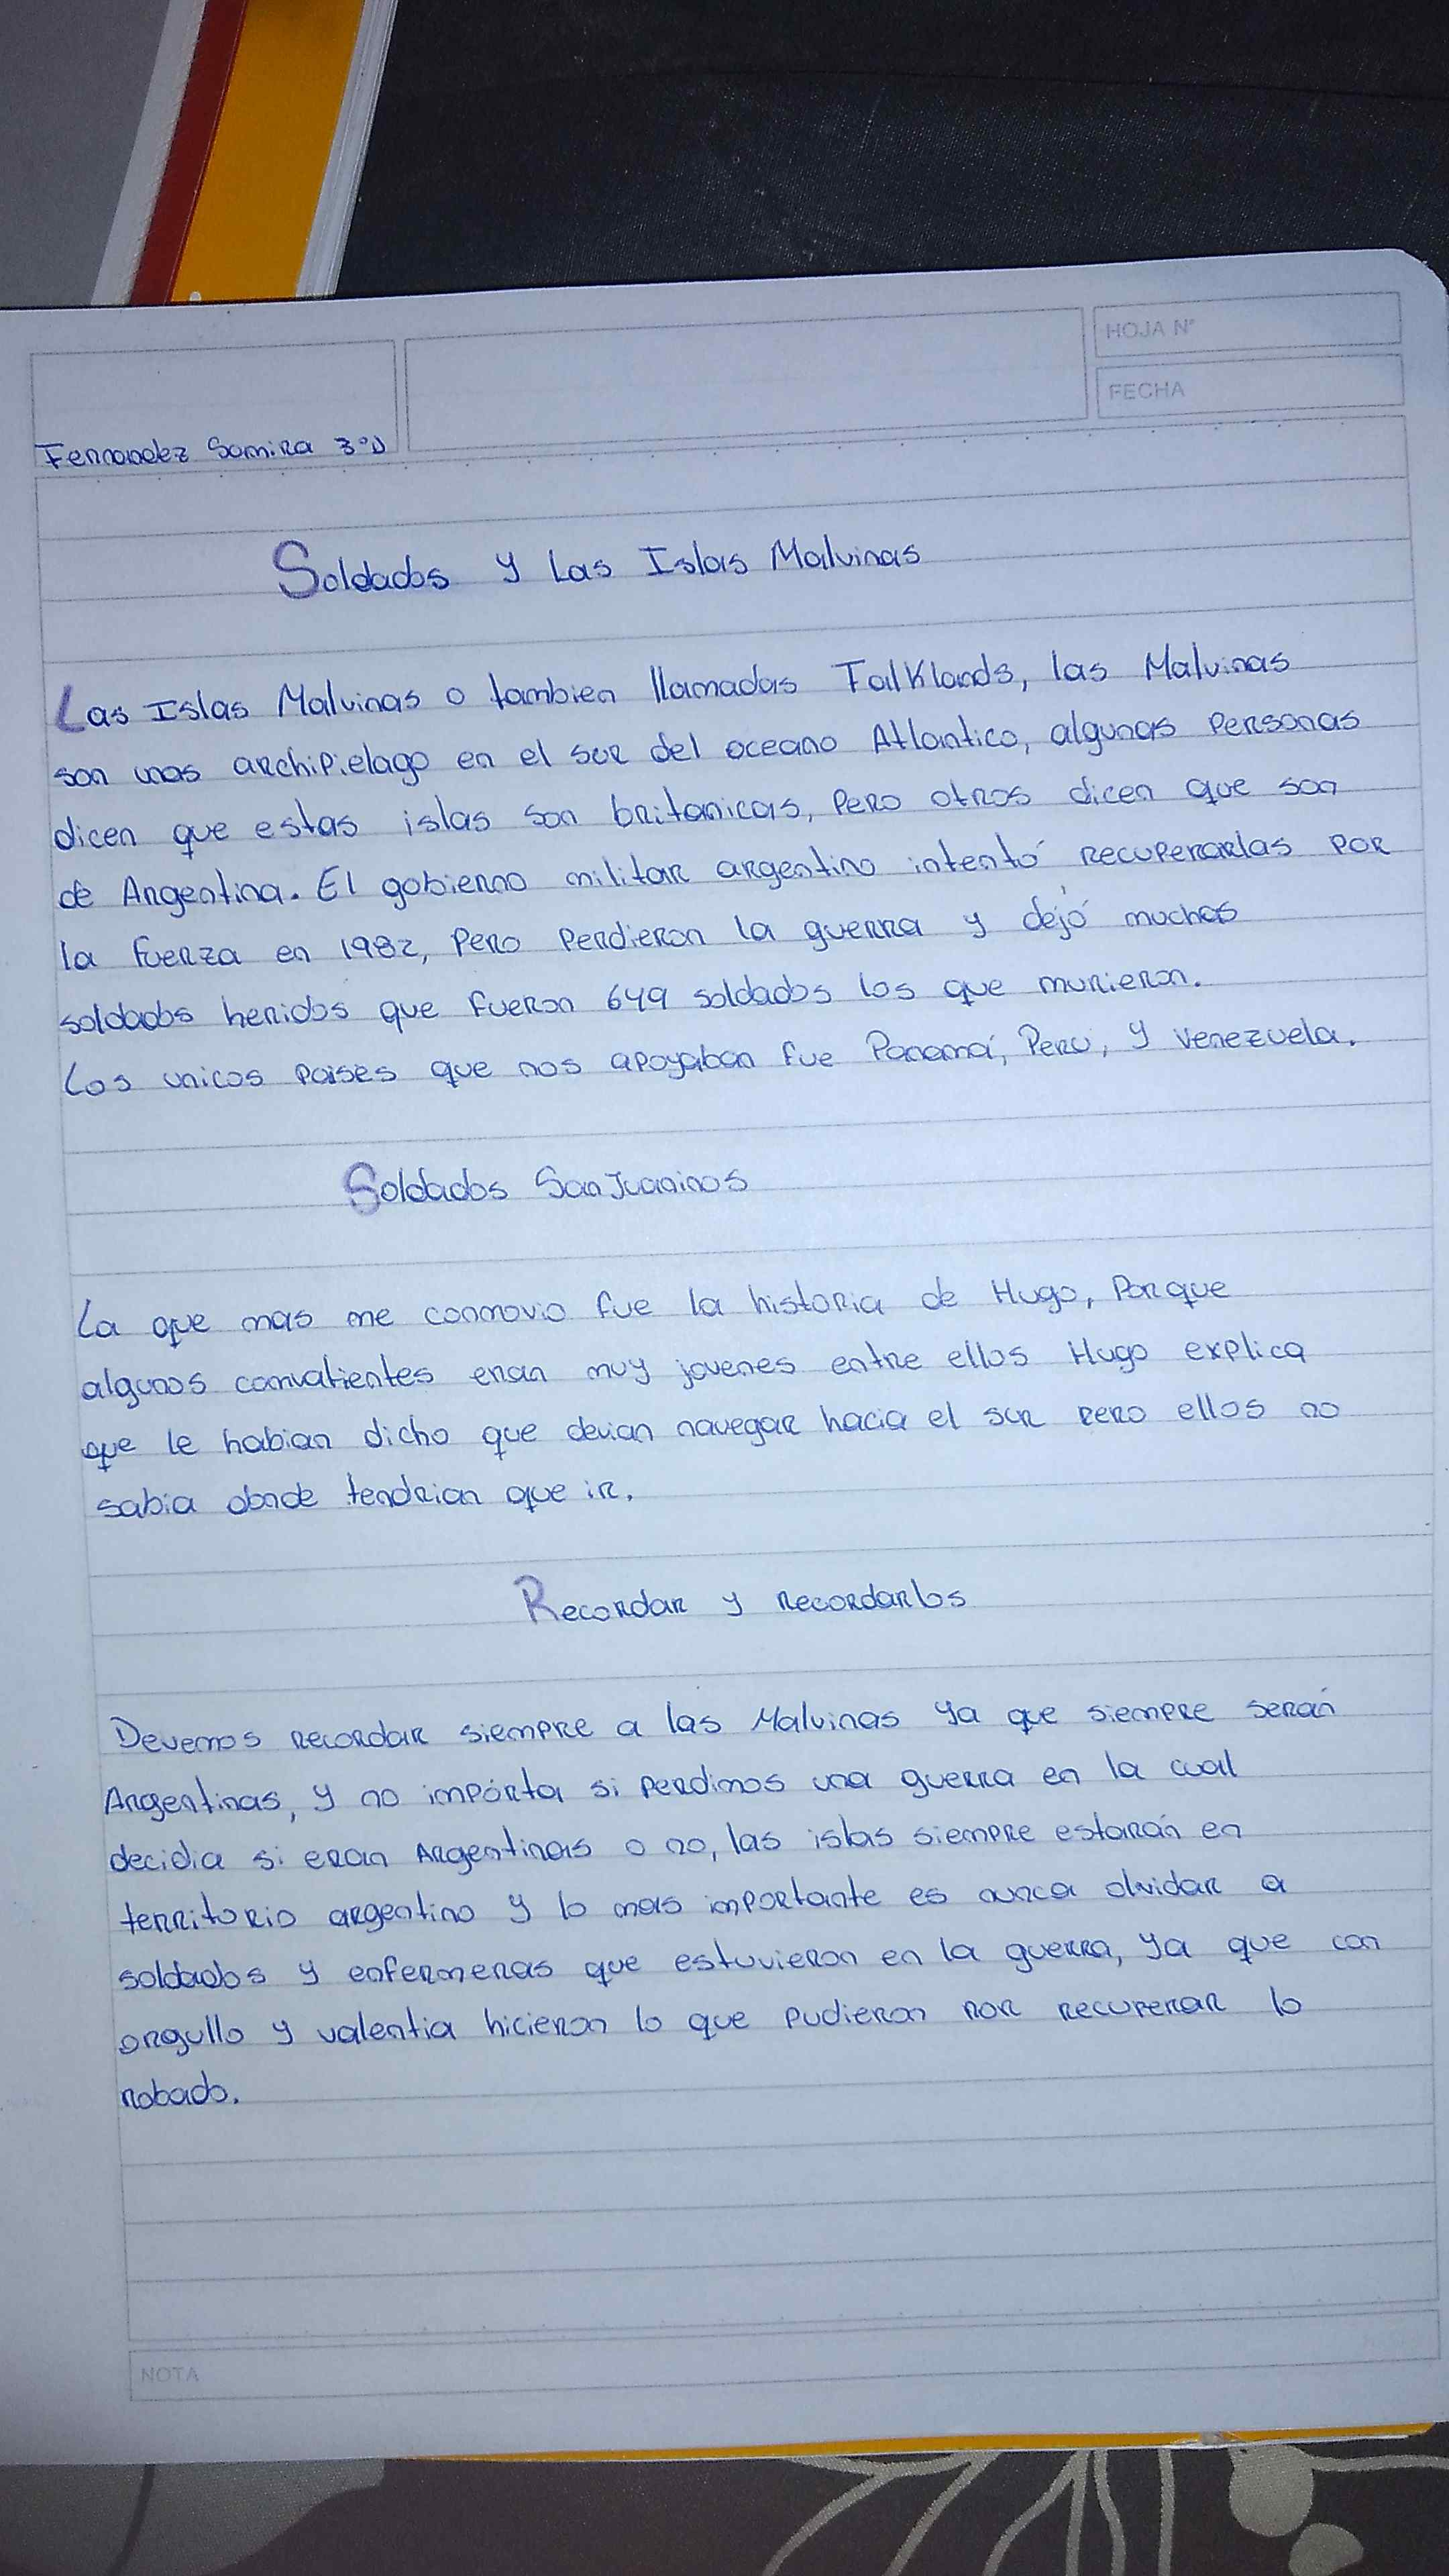 HOJA N°
FECHA
Fernandez Samira 3°D
Soldados y Las Islas Malvinas
Las Islas Malvinas o tambien llamadas Falklands, las Malvinas
son unas archipielago en el sur del oceano Atlantico, algunas personas
dicen que estas islas son britanicas, pero otros dicen que son
de Argentina. El gobierno militar argentino intentó recuperarlas por
la fuerza en 1982, pero perdieron la guerra y dejó muchos
soldados heridos que fueron 649 soldados los que murieron.
Los unicos paises que nos apoyaban fue Panamá, Perú, y Venezuela.
Soldados San Juaninos
La que mas me conmovio fue la historia de Hugo, Porque
algunos convatientes eran muy jovenes entre ellos Hugo explica
que le habian dicho que devian navegar hacia el sur pero ellos no
sabia donde tendrian que ir.
Recordar y recordarlos
Devemos recordar siempre a las Malvinas ya que siempre serán
Argentinas, y no impórta si perdimos una guerra en la cual
decidia si eran Argentinas o no, las islas siempre estarán en
territorio argentino y lo mas importante es nunca olvidar a
soldados y enfermeras que estuvieron en la guerra, ya que con
orgullo y valentia hicieron lo que pudieron por recuperar lo
robado.
NOTA